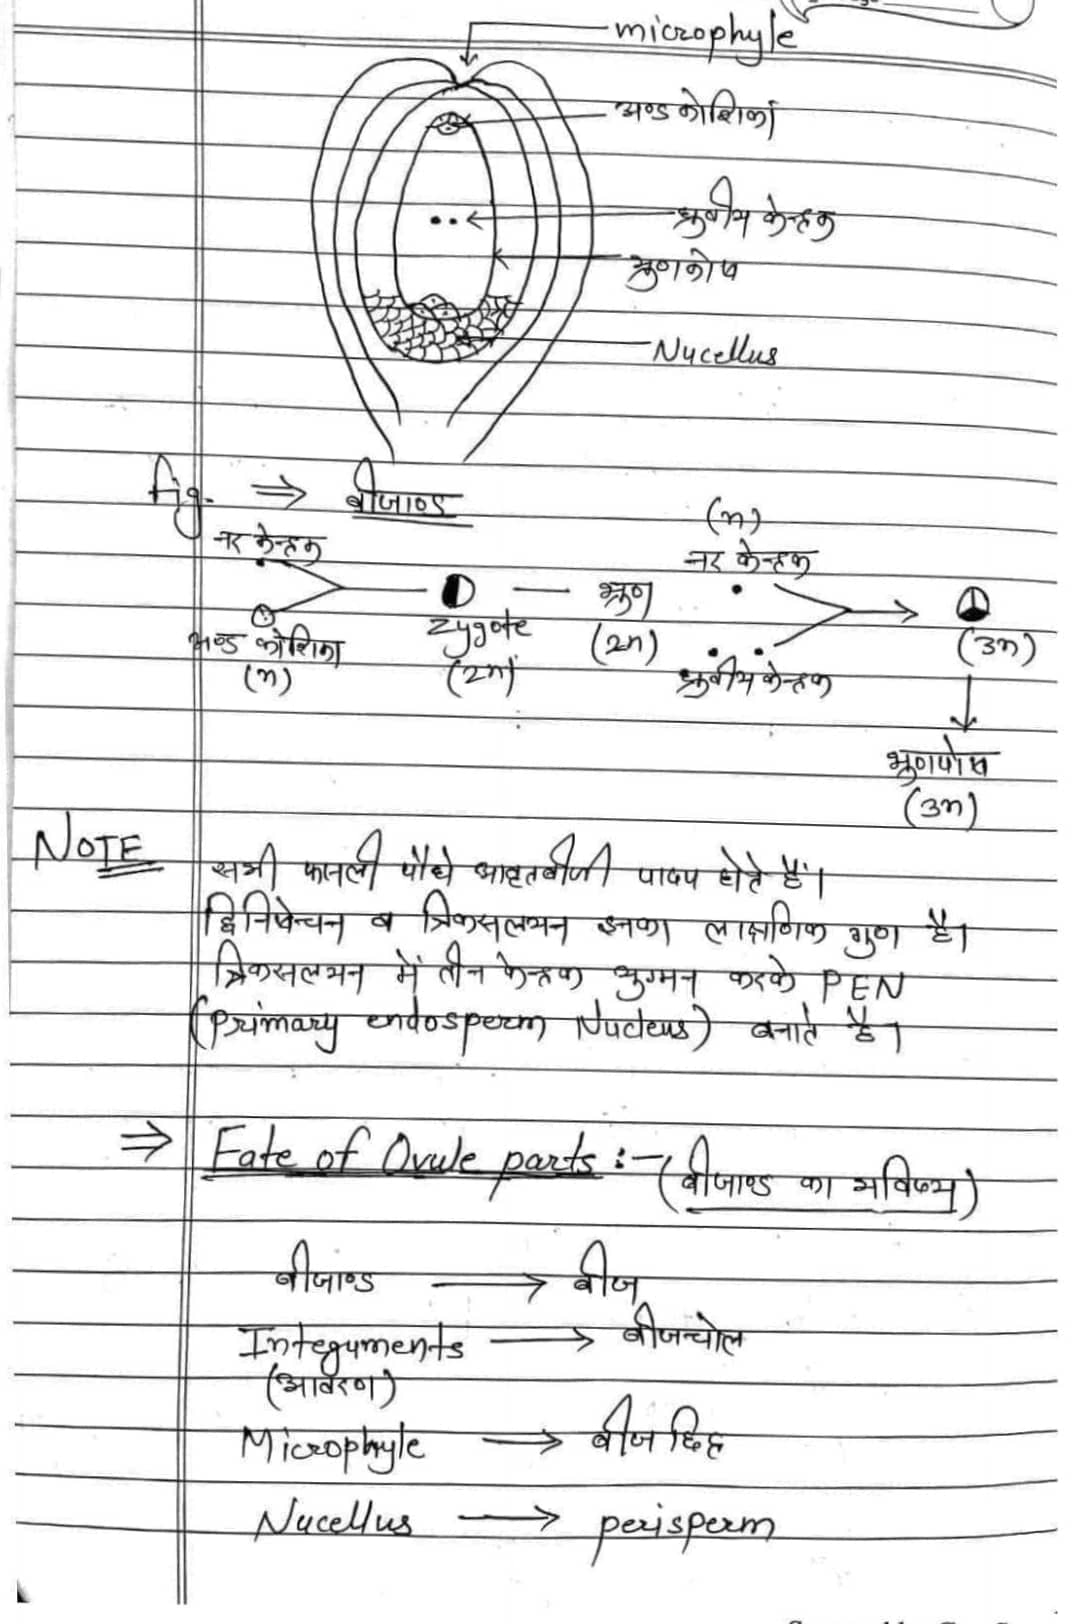 microphyle
अण्ड कोशिका
ध्रुवीय केन्द्रक
भ्रुणकोष
Nucellus
fig. ⇒ बीजाण्ड
नर केन्द्रक
अण्ड कोशिका
(n)
zygote
(2n)
भ्रुण
(2n)
(n)
नर केन्द्रक
ध्रुवीय केन्द्रक
(3n)
भ्रुणपोष
(3n)
NOTE
सभी फलली पौधे आवृतबीजी पादप होते हैं।
द्विनिषेचन व त्रिकसलयन इनका लाक्षणिक गुण है।
त्रिकसलयन में तीन केन्द्रक युग्मन करके PEN
(Primary endosperm Nucleus) बनाते है।
⇒ Fate of Ovule parts :- (बीजाण्ड का भविष्य)
बीजाण्ड → बीज
Integuments → बीजचोल
(आवरण)
Microphyle → बीज छिद्र
Nucellus → perisperm